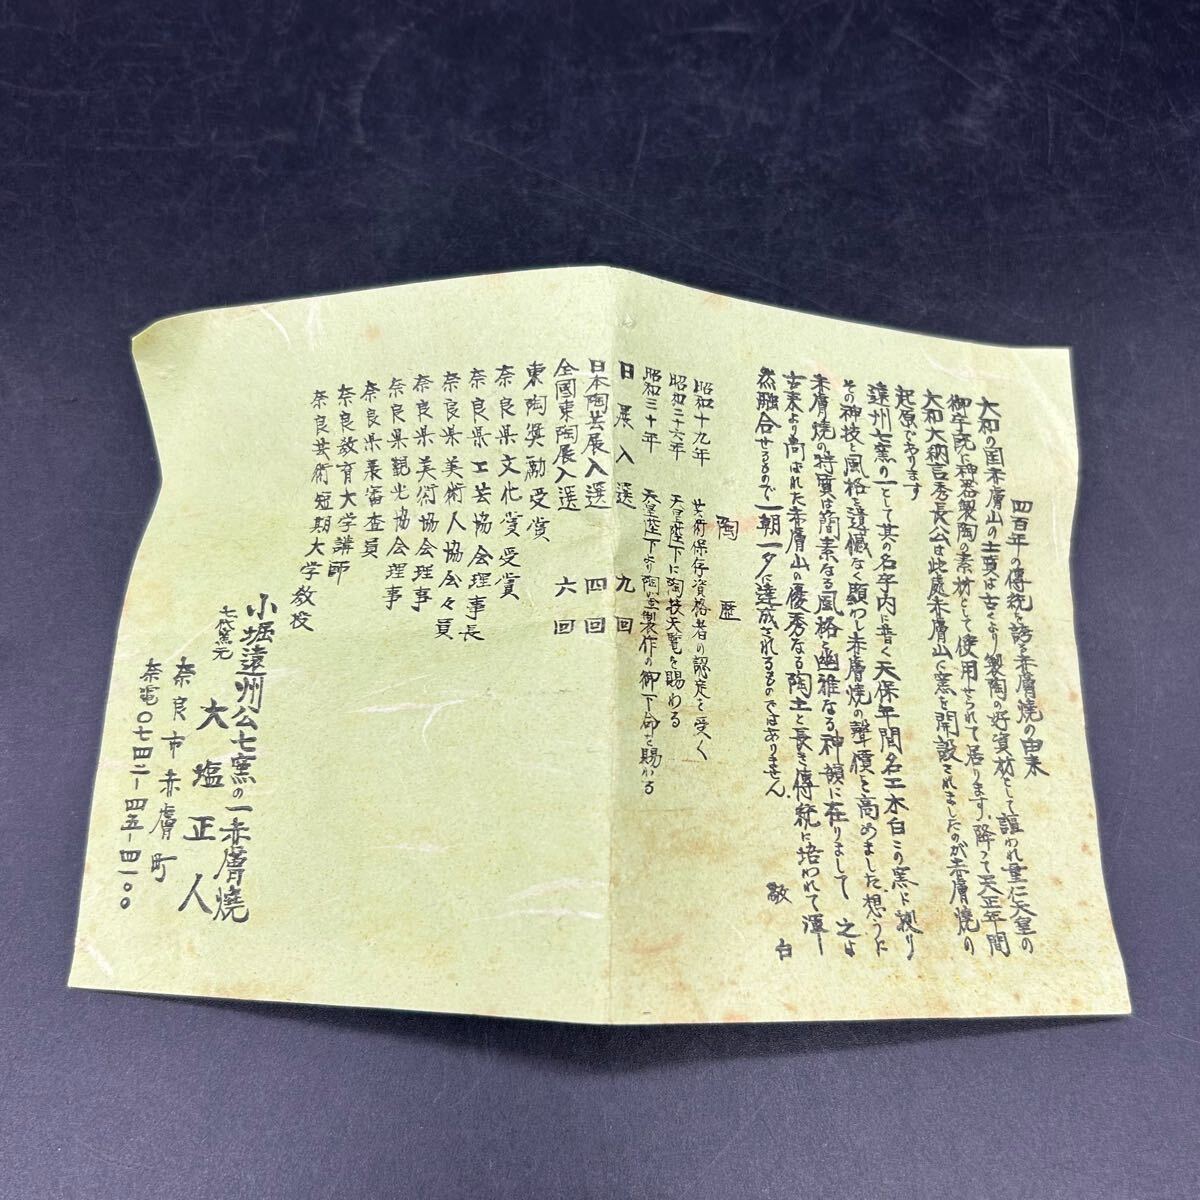 四百年の傳統を誇る赤膚焼の由来
大和の国赤膚山の土質は古くより製陶の好資材として謳われ垂仁天皇の
御宇既に神器製陶の素材として使用せられて居ります、降つて天正年間
大和大納言秀長公は此處赤膚山に窯を開設されましたのが赤膚焼の
起原であります
遠州七窯の一として其の名宇内に普く天保年間名工木白この窯に拠り
その神技と風格を遺憾なく顕わし赤膚焼の聲價を高めました、想うに
赤膚焼の特質は簡素なる風格と幽雅なる神韻に在りまして 之は
古来より尚ばれた赤膚山の優秀なる陶土と長き傳統に培われて渾一
然融合せるもので一朝一夕に達成されるものではありません、
敬白
陶歴
昭和十九年 芸術保存資格者の認定を受く
昭和二十六年 天皇陛下に陶技天覧を賜わる
昭和三十年 天皇陛下より陶画製作の御下命を賜わる
日展入選 九回
日本陶芸展入選 四回
全國東陶展入選 六回
東陶奨励受賞
奈良県文化賞受賞
奈良県工芸協会理事長
奈良県美術人協会々員
奈良県美術協会理事
奈良県観光協会理事
奈良県展審査員
奈良教育大学講師
奈良芸術短期大学教授
小堀遠州公七窯の一赤膚焼
七代窯元 大塩正人
奈良市赤膚町
奈電〇七四二-四五-四一〇〇